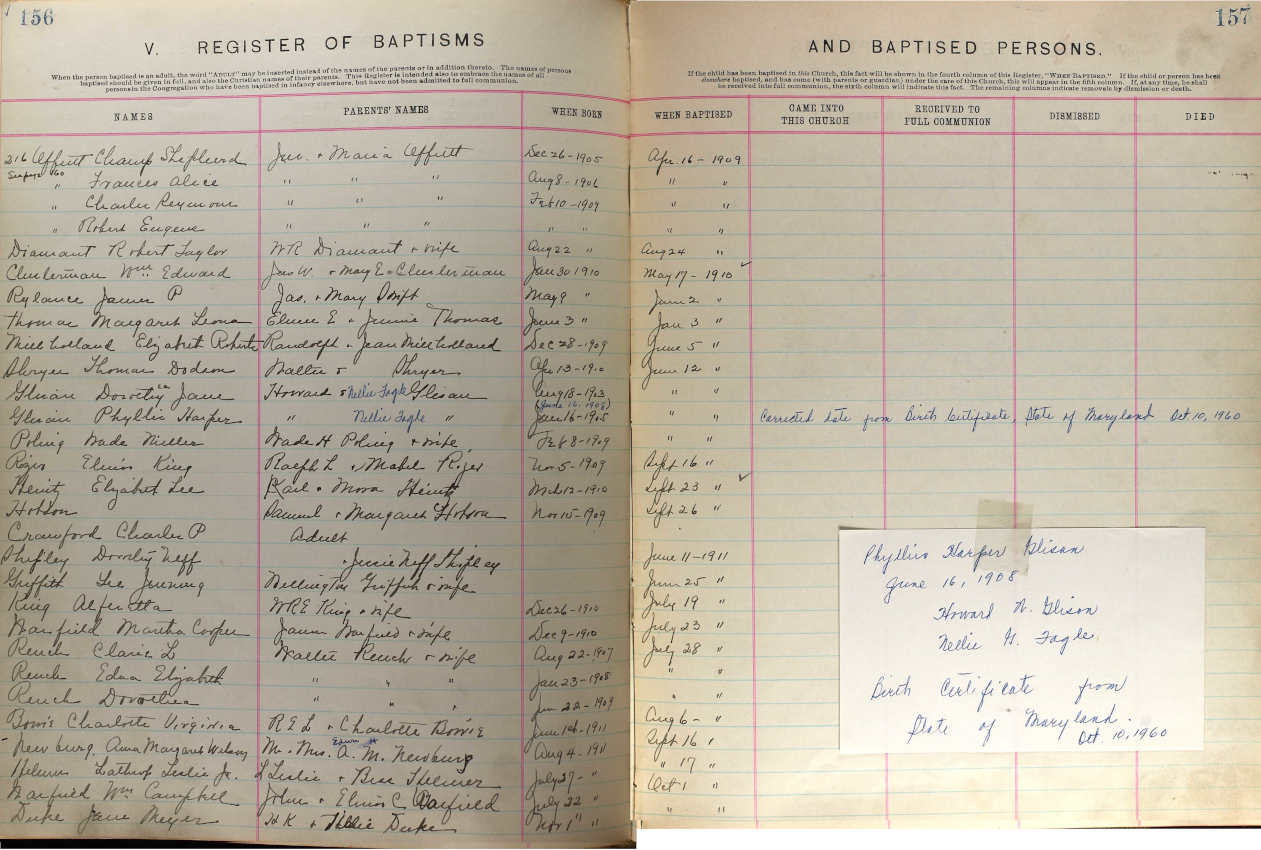 156
V. REGISTER OF BAPTISMS
When the person baptised is an adult, the word "ADULT" may be inserted instead of the names of the parents or in addition thereto. The names of persons
baptised should be given in full, and also the Christian names of their parents. This Register is intended also to embrace the names of all
persons in the Congregation who have been baptised in infancy elsewhere, but have not been admitted to full communion.
157
AND BAPTISED PERSONS.
If the child has been baptised in this Church, this fact will be shown in the fourth column of this Register, "WHEN BAPTISED." If the child or person has been
elsewhere baptised, and has come (with parents or guardian) under the care of this Church, this will appear in the fifth column. If, at any time, he shall
be received into full communion, the sixth column will indicate this fact. The remaining columns indicate removals by dismission or death.
NAMES PARENTS' NAMES WHEN BORN WHEN BAPTISED CAME INTO THIS CHURCH RECEIVED TO FULL COMMUNION DISMISSED DIED
216 Offutt Champ Shepherd Jno. + Maria Offutt Dec 26-1905 Apr. 16-1909
See page 160
" Frances Alice " " " Aug 8-1906 " "
" Charles Reymour " " " Feb 10-1909 " "
" Robert Eugene " " " " " " "
Diamant Robert Taylor WR Diamant + wife Aug 22 " Aug 24 "
Clusterman Wm. Edward Jas W. + May E. Clusterman Jan 30 1910 May 17-1910
Rylance James P Jas. + Mary Swift May 9 " June 2 "
Thomas Margaret Leona Elmer E + Jennie Thomas June 3 " Jan 3 "
Millholland Elizabeth Roberts Randolph + Jean Millholland Dec 28-1909 June 5 "
Shryer Thomas Dodson Walter + Shryer Apr 13-1910 June 12 "
Glisan Dorothy Jane Howard + Nellie Fagle Glisan Aug 18-1903 " "
(June 16, 1908)
Glisan Phyllis Harper " Nellie Fagle " Jan 16-1908 " " Corrected date from Birth Certificate, State of Maryland Oct 10, 1960
Poling Wade Miller Wade H Poling + wife Feb 8-1909 " "
Riger Elmer King Ralph L + Mabel Riger Nov 5-1909 Sept 16 "
Heintz Elizabeth Lee Karl + Mova Heintz Mch 12-1910 Sept 23 "
Hobson Samuel + Margaret Hobson Nov 15-1909 Sept 26 "
Crawford Charles P Adult
Shipley Dorothy Neff + Jennie Neff Shipley June 11-1911
Griffith Lee Jenning Wellington Griffith + wife June 25 "
King Alfretta WRE King + wife Dec 26-1910 July 19 "
Warfield Martha Cooper James Warfield + wife Dec 9-1910 July 23 "
Rench Claire L Walter Rench + wife Aug 22-1907 July 28 "
Rench Edna Elizabeth " " " Jan 23-1908 " "
Rench Dorothea " " " Jun 22-1909 " "
Bowie Charlotte Virginia R E L + Charlotte Bowie June 14-1911 Aug 6- "
Newburg, Anna Margaret Watson Mr. Mrs. Edwin A. M. Newburg Aug 4-1911 Sept 16 "
Helmer Lathrop Leslie Jr. L Leslie + Bess Helmer July 27- " " 17 "
Warfield Wm Campbell John + Elmer C Warfield July 22 " Oct 1 "
Duke Jane Meyer H K + Nellie Duke Nov 1 " " "
Phyllis Harper Glisan
June 16, 1908
Howard N. Glison
Nellie G. Fagle
Birth Certificate from
State of Maryland.
Oct. 10, 1960